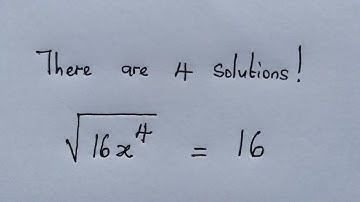 There are 4 solutions!
√16x⁴ = 16